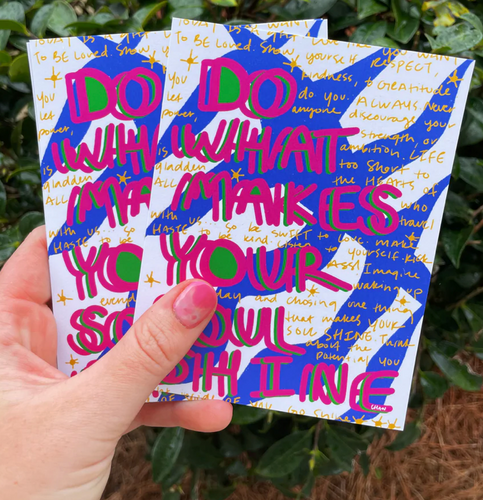 DO
WHAT
MAKES
YOUR
SOUL
SHINE
To BE Loved. Show yourself RESPECT,
kindness, GRATITUDE
you do you. ALWAYS Never
let anyone discourage your
power, strength or
ambition. LIFE
too Short to
gladden the HEARTS of
ALL who
travel
with us... so be SWIFT to Love. make
HASTE to be kind. Listen to yourself. Kick
Ass! Imagine
waking up
everyday and chosing one thing
that makes YOUR
soul SHINE. Think
about the
Potential you
Go Shine
LHAW